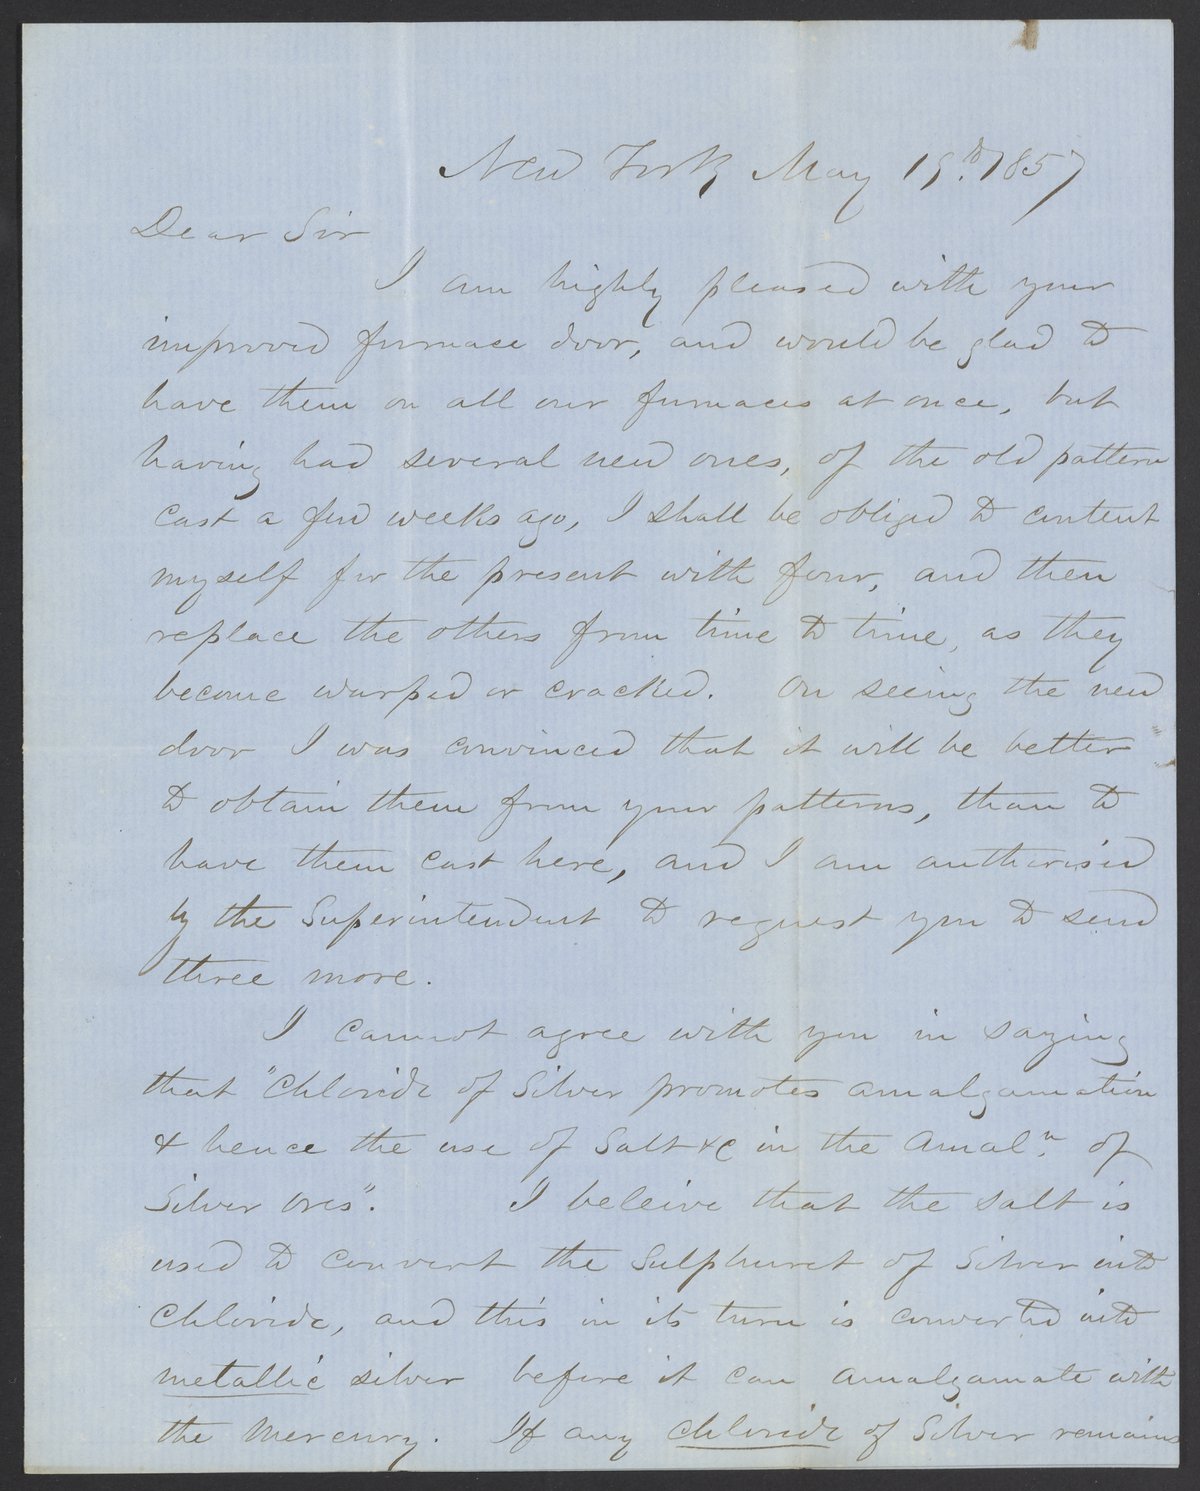 New York May 19th. 1857
Dear Sir
I am highly pleased with your
improved furnace door, and would be glad to
have them on all our furnaces at once, but
having had several new ones, of the old pattern
cast a few weeks ago, I shall be obliged to content
myself for the present with four, and then
replace the others from time to time, as they
become warped or cracked. On seeing the new
door I was convinced that it will be better
to obtain them from your patterns, than to
have them cast here, and I am authorised
by the Superintendent to request you to send
three more.
I cannot agree with you in saying
that "Chloride of Silver promotes amalgamation
& hence the use of Salt &c in the Amaln. of
Silver Ores". I beleive that the salt is
used to convert the Sulphuret of Silver into
Chloride, and this in its turn is converted into
metallic silver before it can amalgamate with
the Mercury. If any chloride of Silver remains